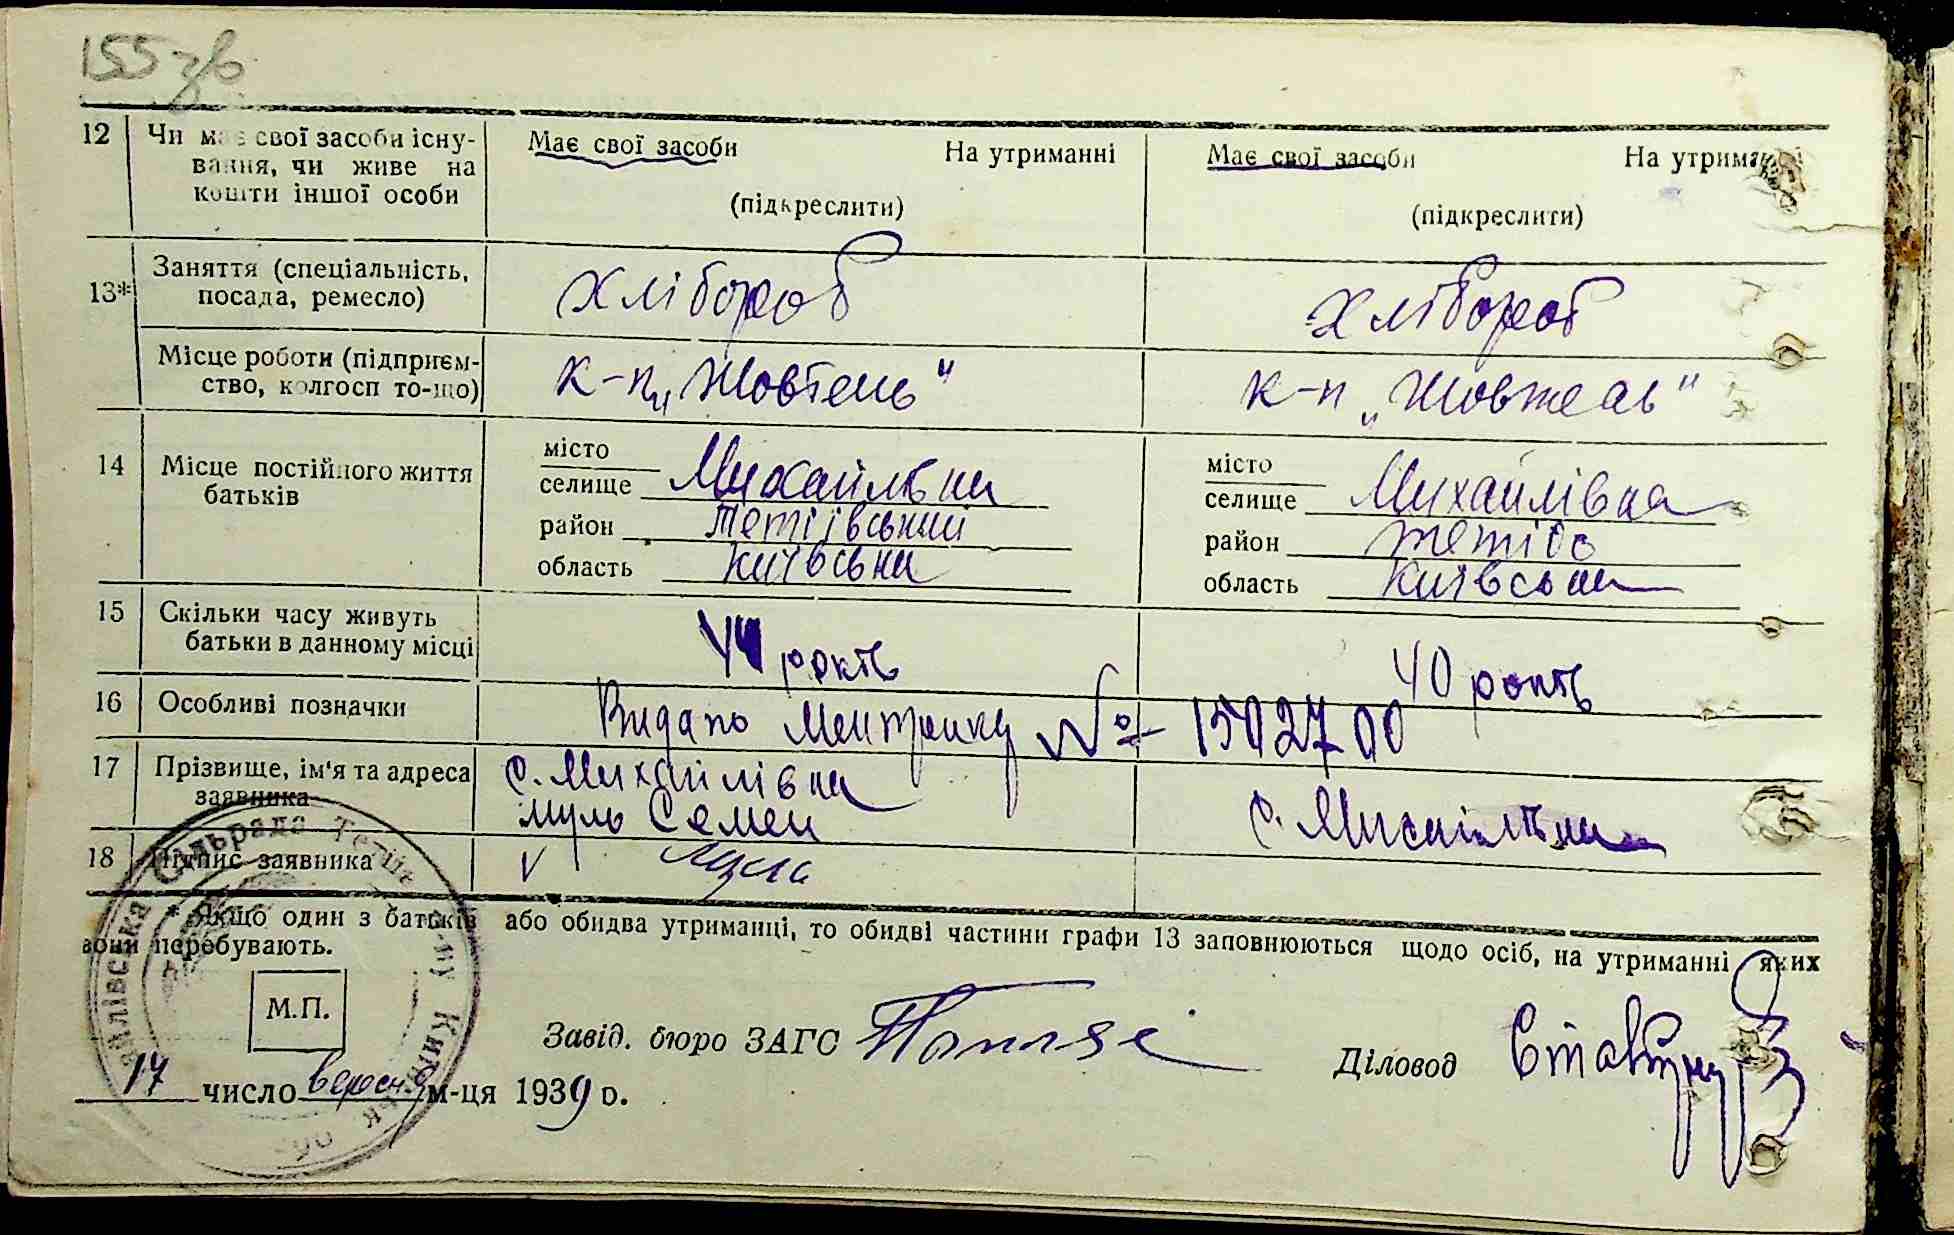 155 зв
12 Чи має свої засоби існу- Має свої засоби На утриманні Має свої засоби На утрима
вання, чи живе на
кошти іншої особи (підкреслити) (підкреслити)
13* Заняття (спеціальність, хлібороб хлібороб
посада, ремесло)
Місце роботи (підприєм- к-п „Жовтень" к-п „Жовтень"
ство, колгосп то-що)
14 Місце постійного життя місто місто
батьків селище Михайлівка селище Михайлівка
район Тетіївський район Тетіїв
область Київська область Київська
15 Скільки часу живуть 44 років 40 років
батьки в данному місці
16 Особливі позначки Видано Метрику № 1502700
17 Прізвище, ім'я та адреса с. Михайлівка с. Михайлівка
заявника Муль Семен
18 Підпис заявника V
* Якщо один з батьків або обидва утриманці, то обидві частини графи 13 заповнюються щодо осіб, на утриманні яких
вони перебувають.
М.П.
Завід. бюро ЗАГС Діловод
17 число вересн м-ця 1939 р.
Сільрада Тетіїв Р-ну Київськ Об